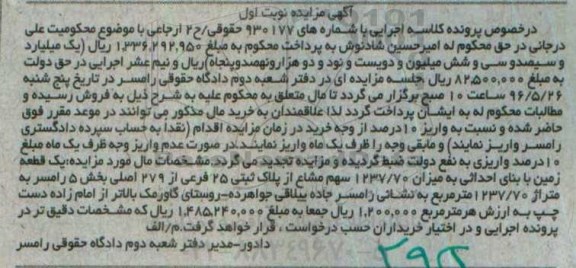 آگهی مزایده نوبت اول
درخصوص پرونده کلاسه اجرایی با شماره های ۹۳۰۱۷۷ حقوقی/ح۲ ارجاعی با موضوع محکومیت علی
درجانی در حق محکوم له امیرحسین شادنوش به پرداخت محکوم به مبلغ ۱,۳۳۶,۲۹۲,۹۵۰ ریال (یک میلیارد
و سیصدو سی و شش میلیون و دویست و نود و دو هزارونهصدوپنجاه)ریال و نیم عشر اجرایی در حق دولت
به مبلغ ۸۲۵۰۰,۰۰۰ ریال جلسه مزایده ای در دفتر شعبه دوم دادگاه حقوقی رامسر در تاریخ پنج شنبه
۹۶/۵/۲۶ ساعت ۱۰ صبح برگزار می گردد تا مال متعلق به محکوم علیه به شرح ذیل به فروش رسیده و
مطالبات محکوم له به ایشان پرداخت گردد لذا علاقمندان به خرید مال مذکور می توانند در موعد مقرر فوق
حاضر شده و نسبت به واریز ۱۰درصد از وجه خرید در زمان مزایده اقدام (نقدا به حساب سپرده دادگستری
رامسر واریز نمایند) و مابقی وجه را ظرف یک ماه واریز نمایند.در صورت عدم واریز وجه ظرف یک ماه مبلغ
۱۰درصد واریزی به نفع دولت ضبط گردیده و مزایده تجدید می گردد.مشخصات مال مورد مزایده:یک قطعه
زمین با بنای احداثی به میزان ۱۲۳۷/۷۰ سهم مشاع از پلاک ثبتی ۲۵ فرعی از ۲۷۹ اصلی بخش ۵ رامسر به
متراژ ۱۲۳۷/۷۰مترمربع به نشانی رامسر جاده ییلاقی جواهرده-روستای گاورمک بالاتر از امام زاده دست
چپ به ارزش هرمترمربع ۱,۲۰۰,۰۰۰ ریال جمعا به مبلغ ۱,۴۸۵,۲۴۰,۰۰۰ ریال که مشخصات دقیق تر در
پرونده اجرایی و در اختیار خریداران حسب درخواست ، قرار خواهد گرفت.م/الف
دادور-مدیر دفتر شعبه دوم دادگاه حقوقی رامسر